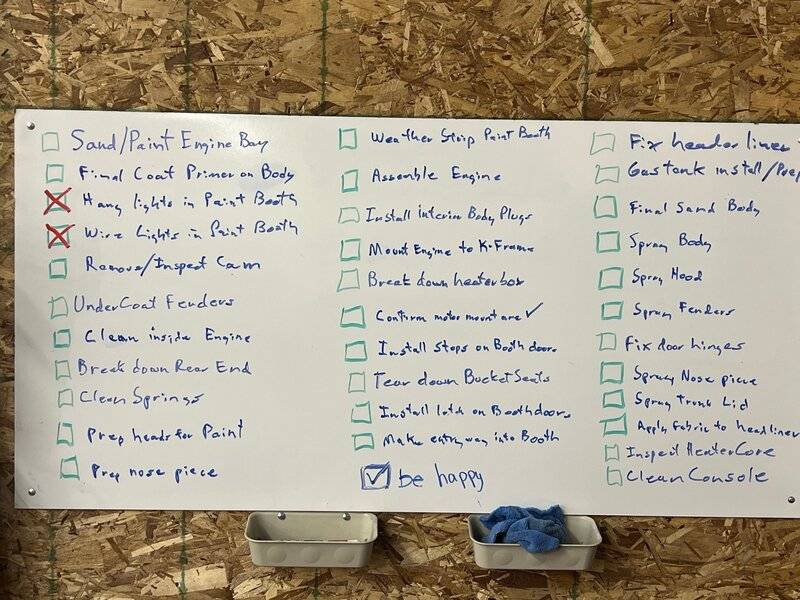 Sand/Paint Engine Bay
Final Coat Primer on Body
Hang lights in Paint Booth
Wire Lights in Paint Booth
Remove/Inspect Cam
UnderCoat Fenders
Clean inside Engine
Break down Rear End
Clean Springs
Prep heads for Paint
Prep nose piece
Weather Strip Paint Booth
Assemble Engine
Install Interior Body Plugs
Mount Engine to K-Frame
Break down heaterbox
Confirm motor mount are ✓
Install Stops on Booth doors
Tear down Bucket Seats
Install latch on Booth doors
Make entryway into Booth
be happy
Fix header liner
Gas tank install/Prep
Final Sand Body
Spray Body
Spray Hood
Spray Fenders
Fix door hinges
Spray Nose piece
Spray Trunk Lid
Apply Fabric to headliner
Inspect HeaterCore
Clean Console